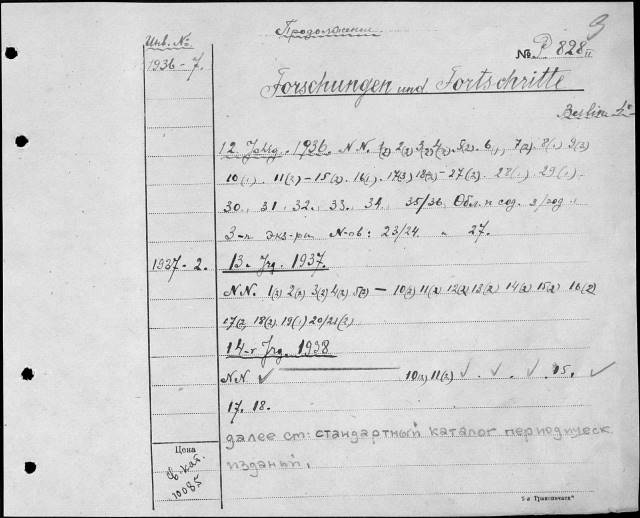 Продолжение
9
Инв. №
№ P 828 II
1936 - 7.
Forschungen und Fortschritte
Berlin 4°
12. Jahrg. 1936. N.N. 1(2) 2(2) 3(2) 4(2) 5(2). 6(1) 7(2) 8(1) 9(3)
10(1). 11(2) - 15(2). 16(1). 17(3) 18(2) - 27(2). 28(1). 29(1).
30. 31. 32. 33. 34. 35/36. Обл. и сод. з/год.
3-и экз-ры N-ов: 23/24. и 27.
1937 - 2. 13. Jrg. 1937.
N.N. 1(2) 2(2) 3(2) 4(2) 5(2) — 10(2) 11(2) 12(2) 13(2) 14(2) 15(2) 16(2)
17(2) 18(2) 19(1) 20/21(2)
14-r Jrg. 1938
N N ✓ 10(2) 11(2) ✓ ✓ . ✓ . 15. ✓
17. 18.
далее см: стандартный каталог периодическ
изданий.
Цена
10085
5-я Транспечать